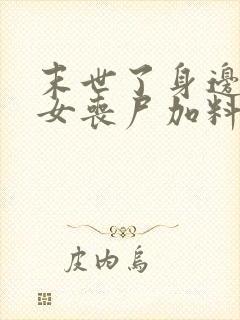 末世了身邊
女喪尸加料
皮內烏